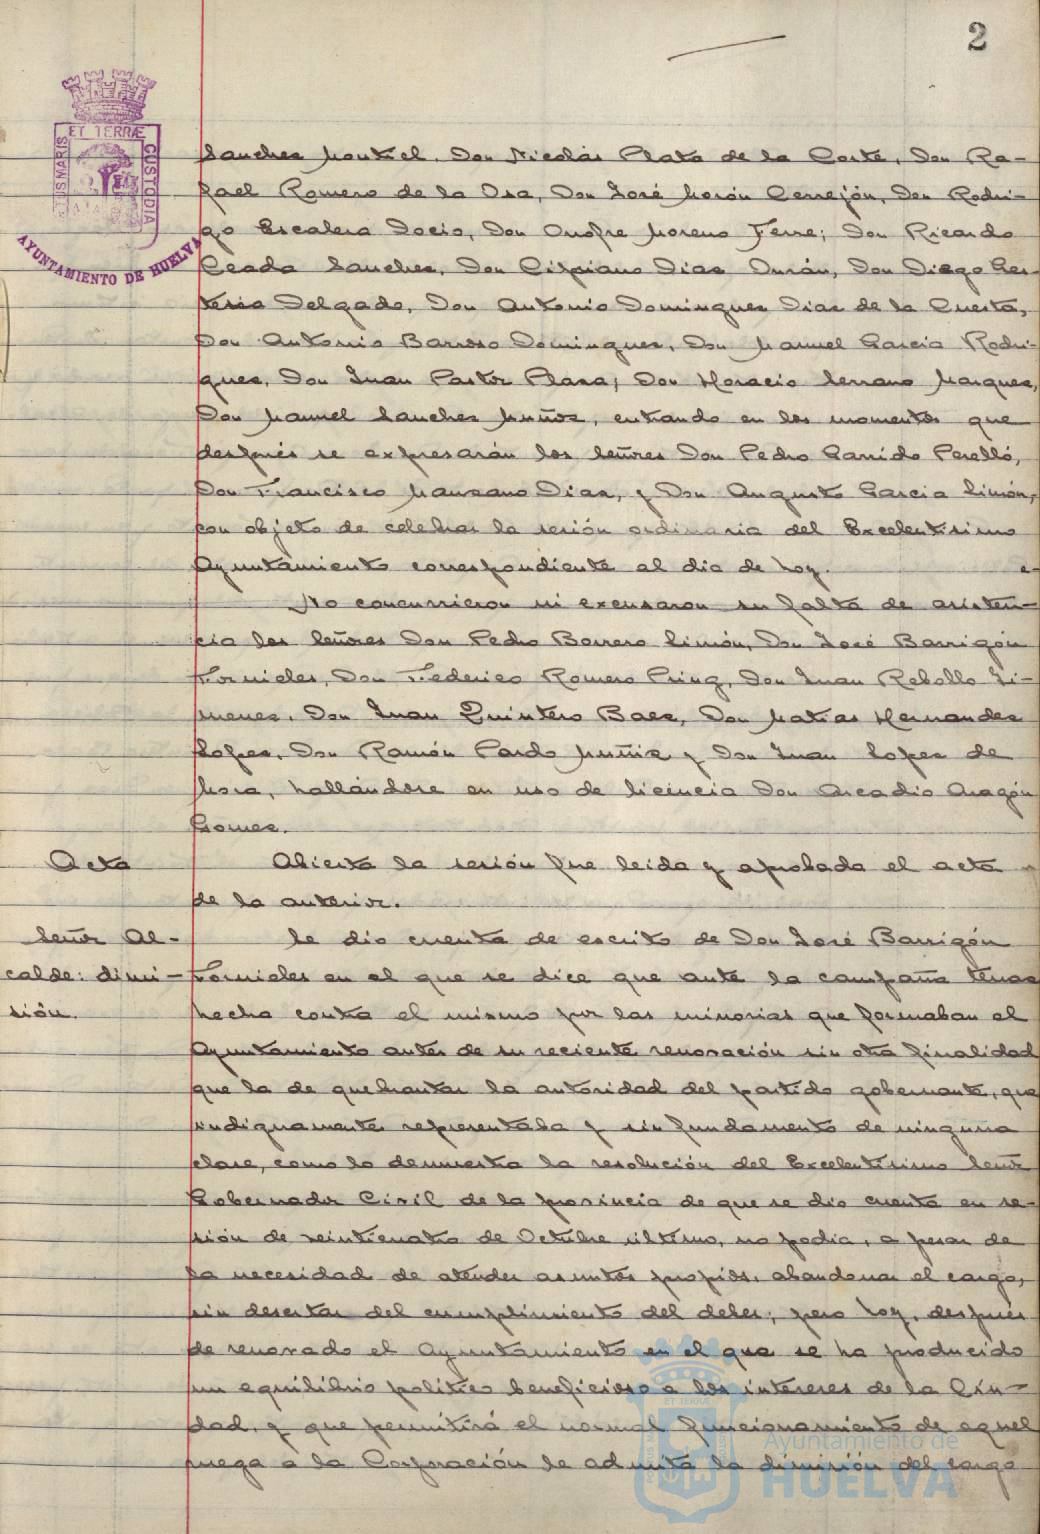 2
ET TERRÆ
CUSTODIA
AYUNTAMIENTO DE HUELVA
Sanchez Montiel, Don Nicolás Plata de la Corte, Don Ra-
fael Romero de la Osa, Don José Morón Cerrejón, Don Rodri-
go Escalera Socio, Don Onofre Moreno Ferre; Don Ricardo
Ceada Sanchez, Don Cipriano Diaz Durán, Don Diego
Delgado, Don Antonio Dominguez Diaz de la Cuesta,
Don Antonio Barroso Dominguez, Don Manuel Garcia Rodri-
guez, Don Juan Pastor Plaza; Don Horacio Serrano Marquez,
Don Manuel Sanchez Muñoz, entrando en los momentos que
después se expresarán los Señores Don Pedro Garrido Perelló,
Don Francisco Manzano Diaz, y Don Augusto Garcia Simón,
con objeto de celebrar la sesión ordinaria del Excelentisimo
Ayuntamiento correspondiente al dia de hoy.
No concurrieron ni excusaron su falta de asisten-
cia los Señores Don Pedro Borrero Limón, Don José Barrigón
Fornieles, Don Federico Romero Pring, Don Juan Rebollo Ji-
menez, Don Juan Quintero Baez, Don Matias Hernandez
Lopez, Don Ramón Pardo Muñiz y Don Juan Lopez de
Mora, hallándose en uso de licincia Don Arcadio Aragón
Gomez.
Acta
Abierta la sesión fue leida y aprobada el acta
de la anterior.
Señor Al-
calde: dimi-
sión.
Se dio cuenta de escrito de Don José Barrigón
Fornieles en el que se dice que ante la campaña tenaz
hecha contra el mismo por las minorias que formaban el
Ayuntamiento antes de su reciente renovación sin otra finalidad
que la de quebrantar la autoridad del partido gobernante, que
indignamente representaba y sin fundamento de ninguna
clase, como lo demuestra la resolución del Excelentisimo Señor
Gobernador Civil de la provincia de que se dio cuenta en se-
sión de veinticuatro de Octubre último, no podia, a pesar de
la necesidad de atender asuntos propios, abandonar el cargo,
sin desertar del cumplimiento del deber; pero hoy, después
de renovado el Ayuntamiento en el que se ha producido
un equilibrio politico beneficioso a los intereses de la Ciu-
dad, y que permitirá el normal funcionamiento de aquel
ruega a la Corporación le admita la dimisión del cargo
Ayuntamiento de
HUELVA